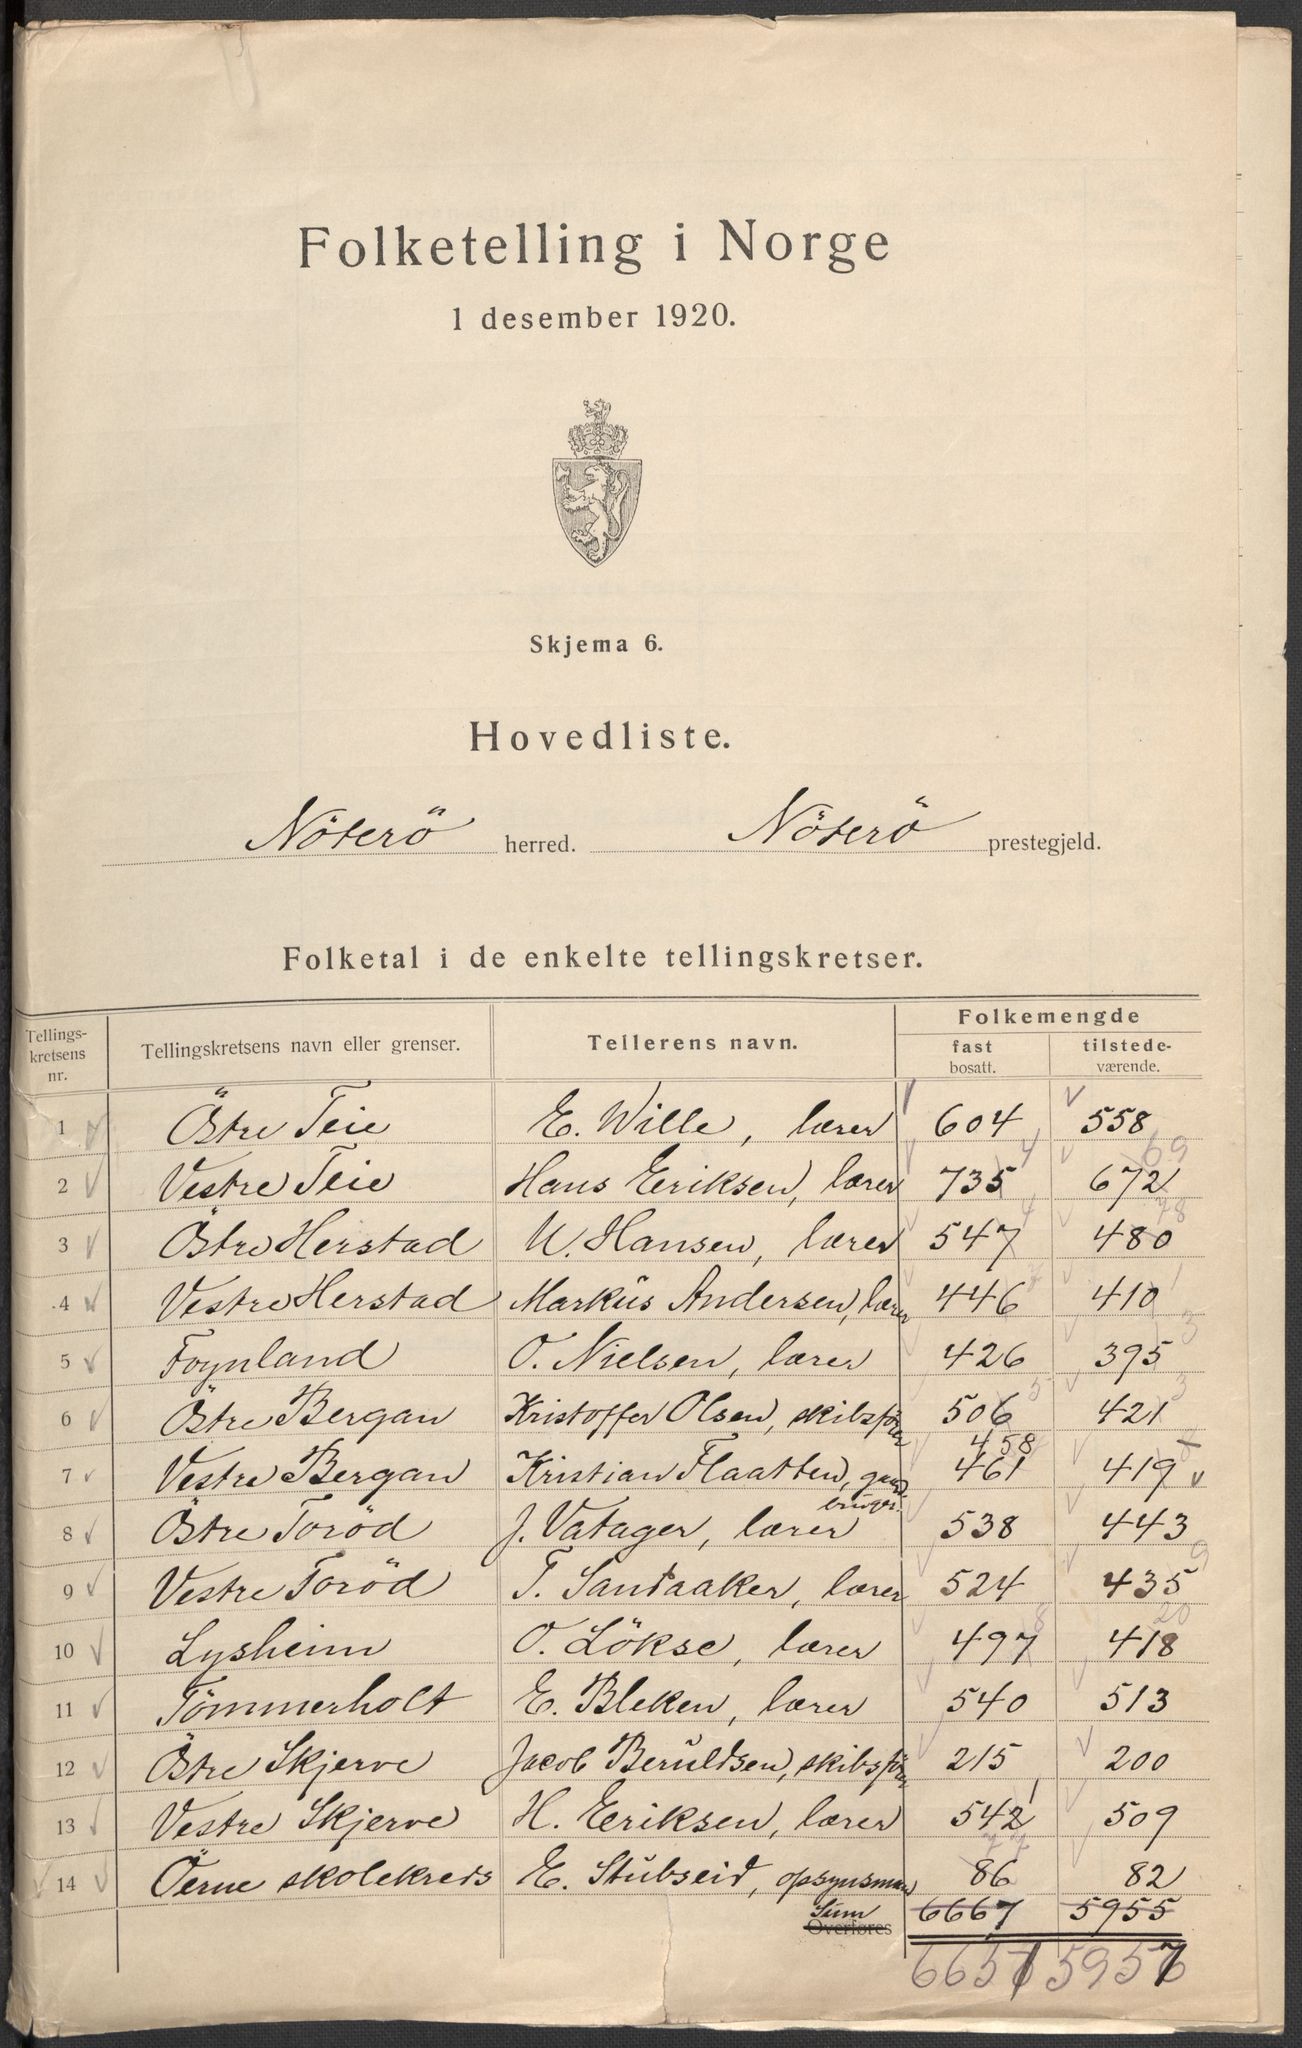 Folketelling i Norge
1 desember 1920.
Skjema 6.
Hovedliste.
Nöterö herred. Nöterö prestegjeld.
Folketal i de enkelte tellingskretser.
Tellings-kretsens nr. Tellingskretsens navn eller grenser. Tellerens navn. Folkemengde fast bosatt. tilstede-værende.
1 Östre Teie E. Wille, lærer 604 558
2 Vestre Teie Hans Eeriksen, lærer 735 4 672 69
3 Östre Herstad M. Hansen, lærer 547 4 480 78
4 Vestre Herstad Markus Andersen, lærer 446 410 1
5 Föynland O. Nielsen, lærer 426 395 3
6 Östre Bergan Kristoffer Olsen, skibsfører 506 5 421 3
7 Vestre Bergan Kristian Flaatten, gaardbruger. 461 458 419
8 Östre Toröd J. Vatager, lærer 538 443
9 Vestre Toröd T. Sandaaker, lærer 524 435 9
10 Lysheim O. Lökse, lærer 497 8 418 20
11 Tömmerholt E. Bleken, lærer 540 513
12 Östre Skjerve Jacob Beruldsen, skibsfører 215 200
13 Vestre Skjerve H. Eeriksen, lærer 542 1 509
14 Öerne skolekreds E. Stubseid, opsynsmand 86 77 82
Sum Overføres 6667 5955
6657 5957